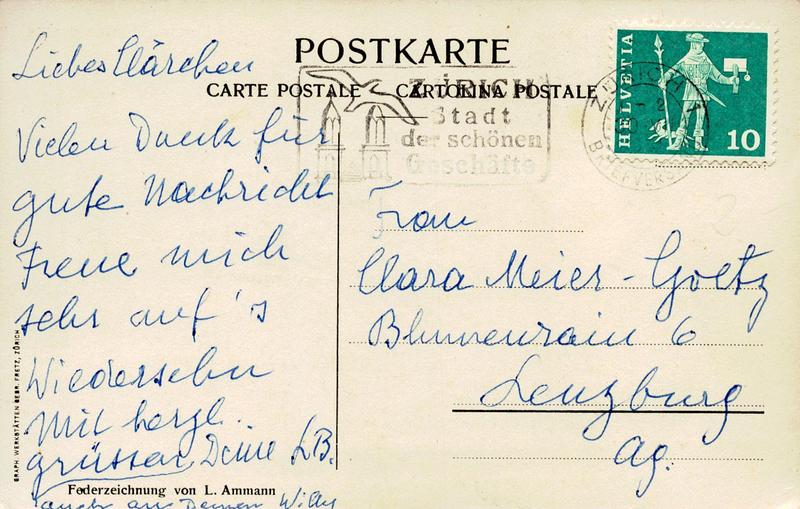 POSTKARTE
CARTE POSTALE CARTOLINA POSTALE
Liebes Clärchen
Vielen Dank für
gute Nachricht
Freue mich
sehr auf's
Wiedersehn
Mit herzl.
grüssen Deine LB.
auch an Deinen Willy
ZÜRICH
Stadt
der schönen
Geschäfte
HELVETIA
10
ZÜRICH 1
BRIEFVERSAND
Frau
Clara Meier-Goetz
Blumenrain 6
Lenzburg
Ag.
GRAPH. WERKSTÄTTEN GEBR. FRETZ, ZÜRICH
Federzeichnung von L. Ammann